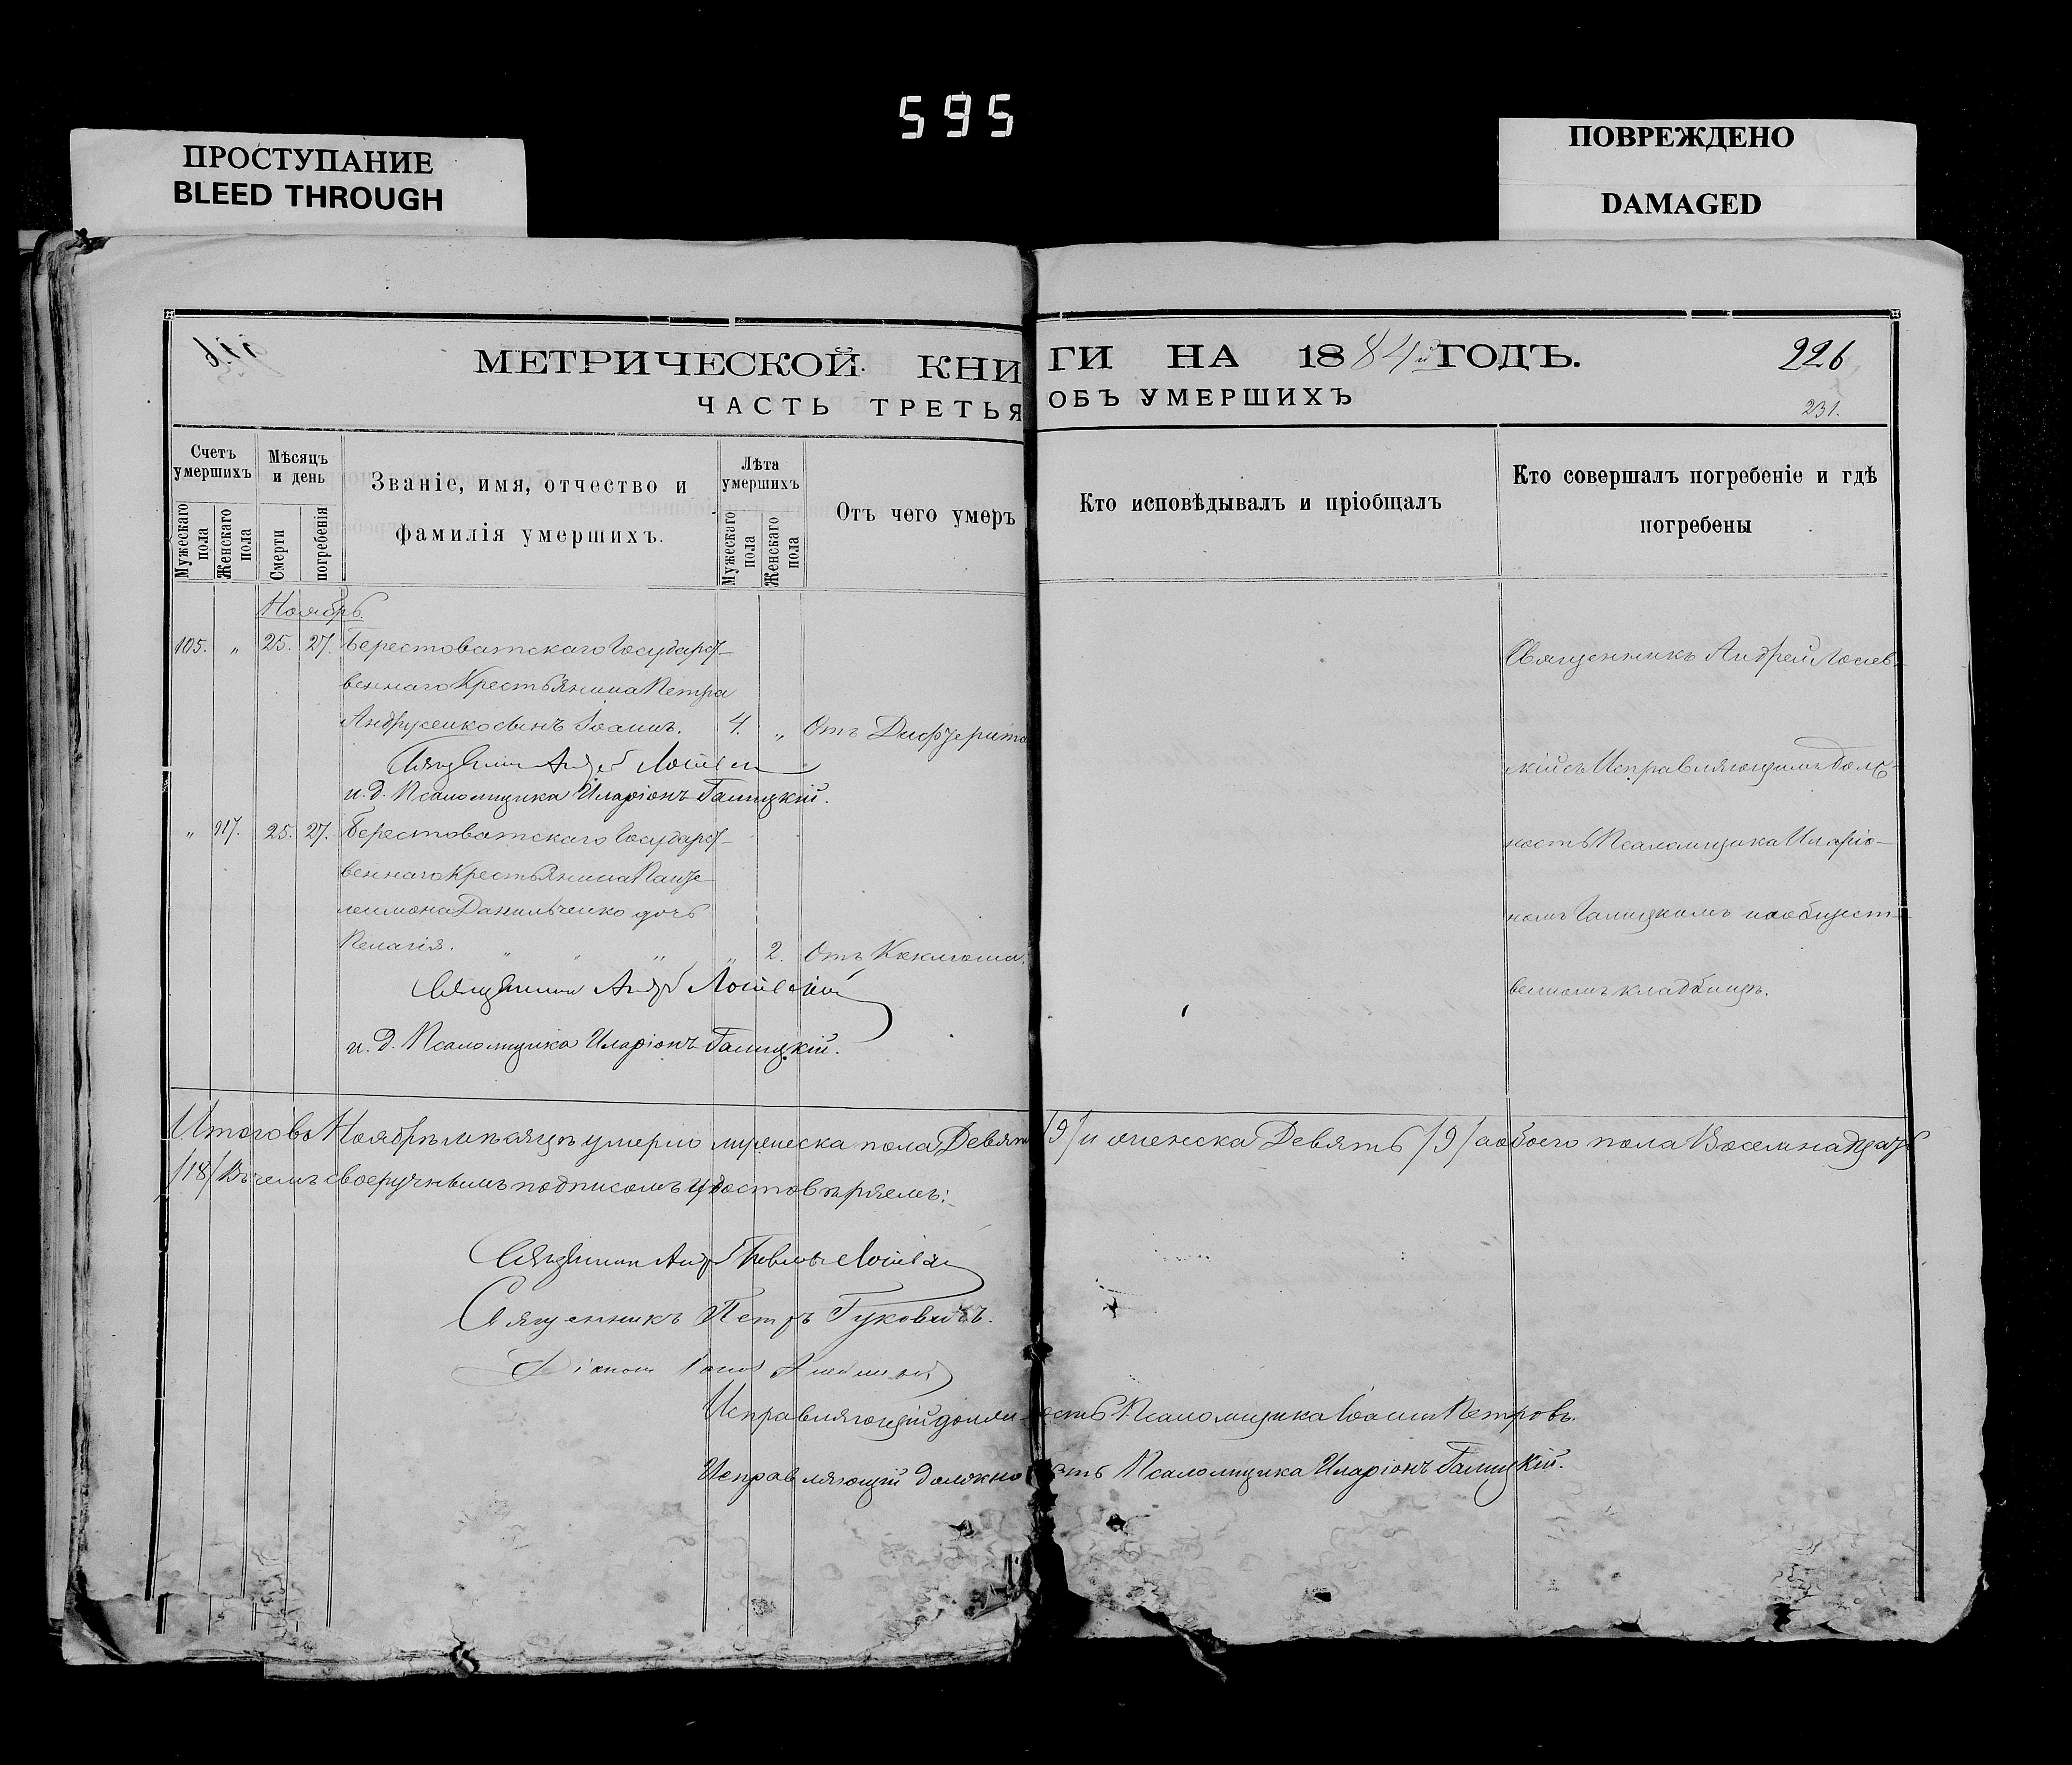 595
ПРОСТУПАНИЕ
BLEED THROUGH
ПОВРЕЖДЕНО
DAMAGED
МЕТРИЧЕСКОЙ КНИГИ НА 1884й ГОДЪ.
226
ЧАСТЬ ТРЕТЬЯ ОБЪ УМЕРШИХЪ
231.
Счетъ умершихъ
Мужескаго пола
Женскаго пола
Мѣсяцъ и день
Смерти
погребенія
Званіе, имя, отчество и
фамилія умершихъ.
Лѣта умершихъ
Мужескаго пола
Женскаго пола
Отъ чего умеръ
Кто исповѣдывалъ и пріобщалъ
Кто совершалъ погребеніе и гдѣ
погребены
Ноябрь.
105. „ 25. 27. Берестоватскаго Государст-
веннаго Крестьянина Петра
Андрусенко сынъ Іоаннъ. 4. „ Отъ Дифтерита
Священникъ Андрей
и. д. Псаломщика Иларіонъ Галицкій.
„ 117. 25. 27. Берестоватскаго Государст-
веннаго Крестьянина Панте-
леимона Данильченко дочь
Пелагія. „ „ „ „ 2. Отъ Коклюша.
Священникъ Андрей
и. д. Псаломщика Иларіонъ Галицкій.
Священникъ Андрей
кій съ Исправляющимъ долж-
ность Псаломщика Иларіо-
номъ Галицкимъ на общест-
венномъ кладбищѣ.
Итого въ Ноябрѣ мѣсяцѣ умерло мужеска пола Девять /9/ и женска Девять /9/ а обоего пола Восемнадцать
/18/ Въ чемъ своеручнымъ подписомъ удостовѣряемъ:
Священникъ Андрей
Священникъ Петръ Гуковичъ.
Діаконъ
Исправляющій должность Псаломщика Іоаннъ Петровъ.
Исправляющій должность Псаломщика Иларіонъ Галицкій.